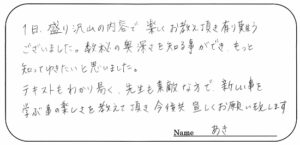 1日、盛り沢山の内容で楽しくお教え頂き有り難う
ございました。数秘の奥深さを知る事ができ、もっと
知ってゆきたいと思いました。
テキストもわかり易く、先生も素敵な方で、新しい事を
学ぶ事の楽しさを教えて頂き今後共宜しくお願い致します
Name あき